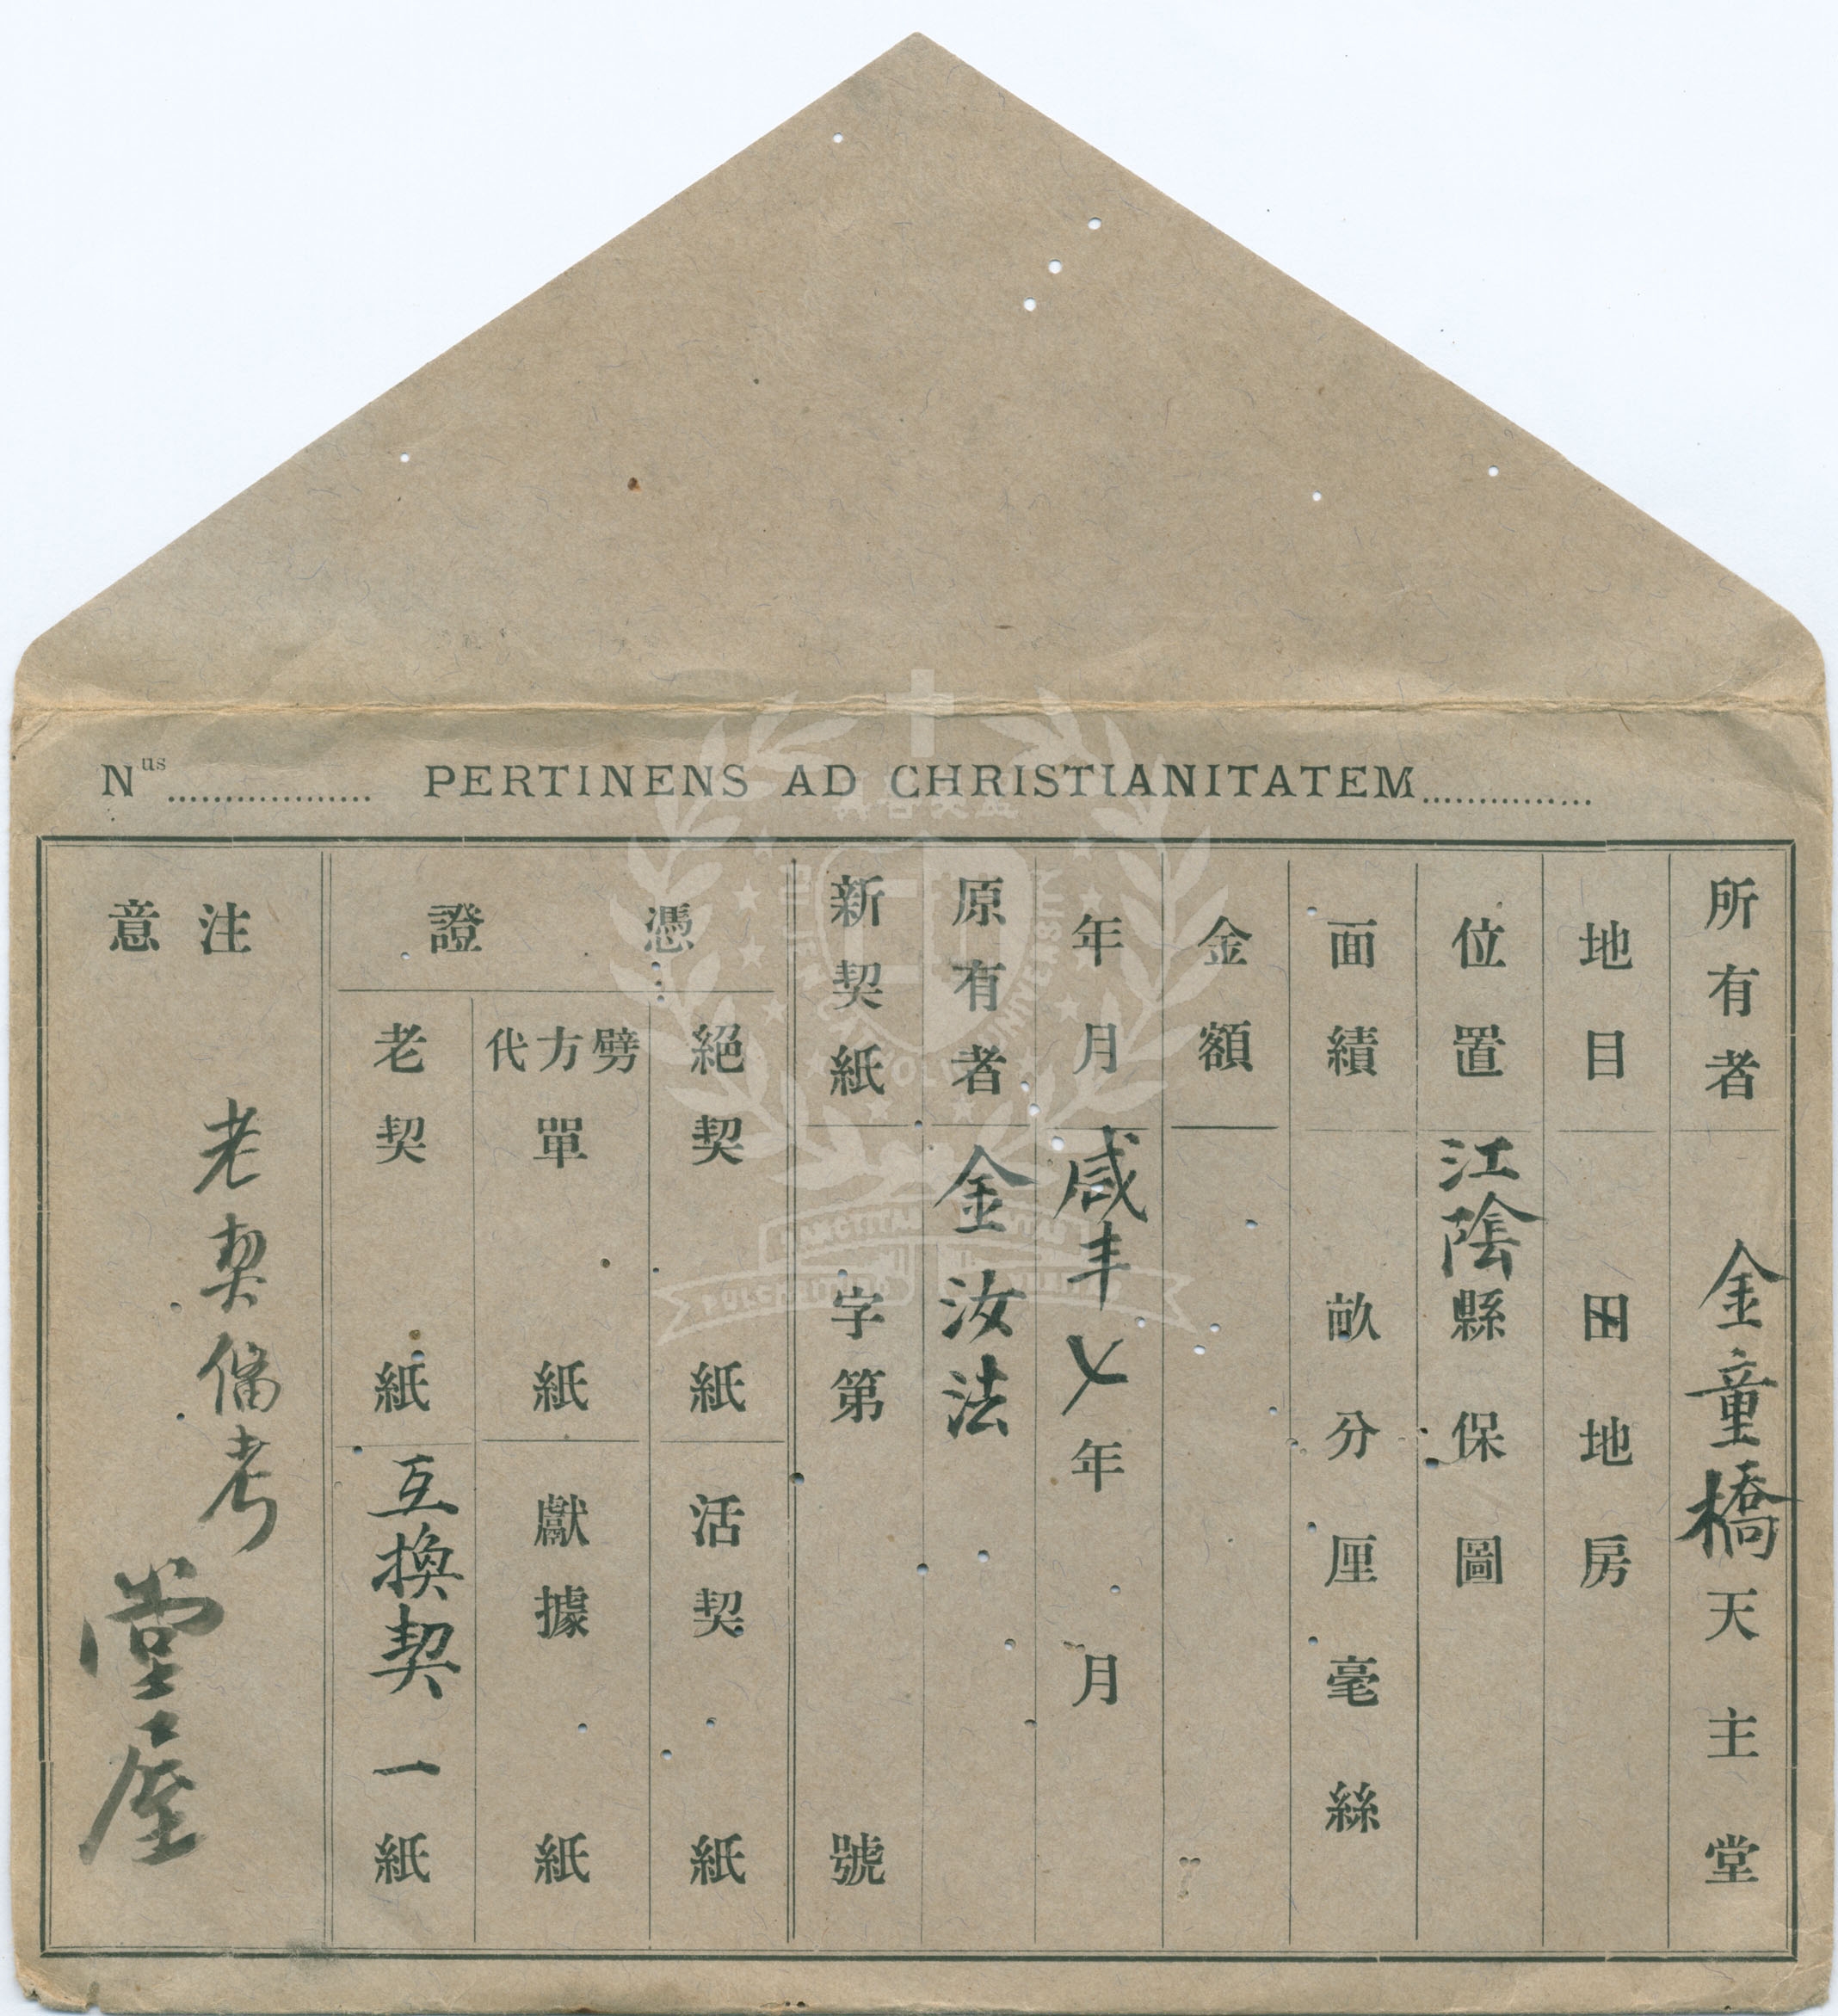 Nus .................. PERTINENS AD CHRISTIANITATEM...............
所有者 金童橋天主堂
地目 田地房
位置 江陰縣保圖
面績 畝分厘毫絲
金額
年月 咸丰〤年月
原有者 金汝法
新契紙 字第號
憑證
絕契 紙
活契 紙
劈方代單 紙
獻據 紙
老契 紙
互換契一紙
注意
老契備考
堂屋